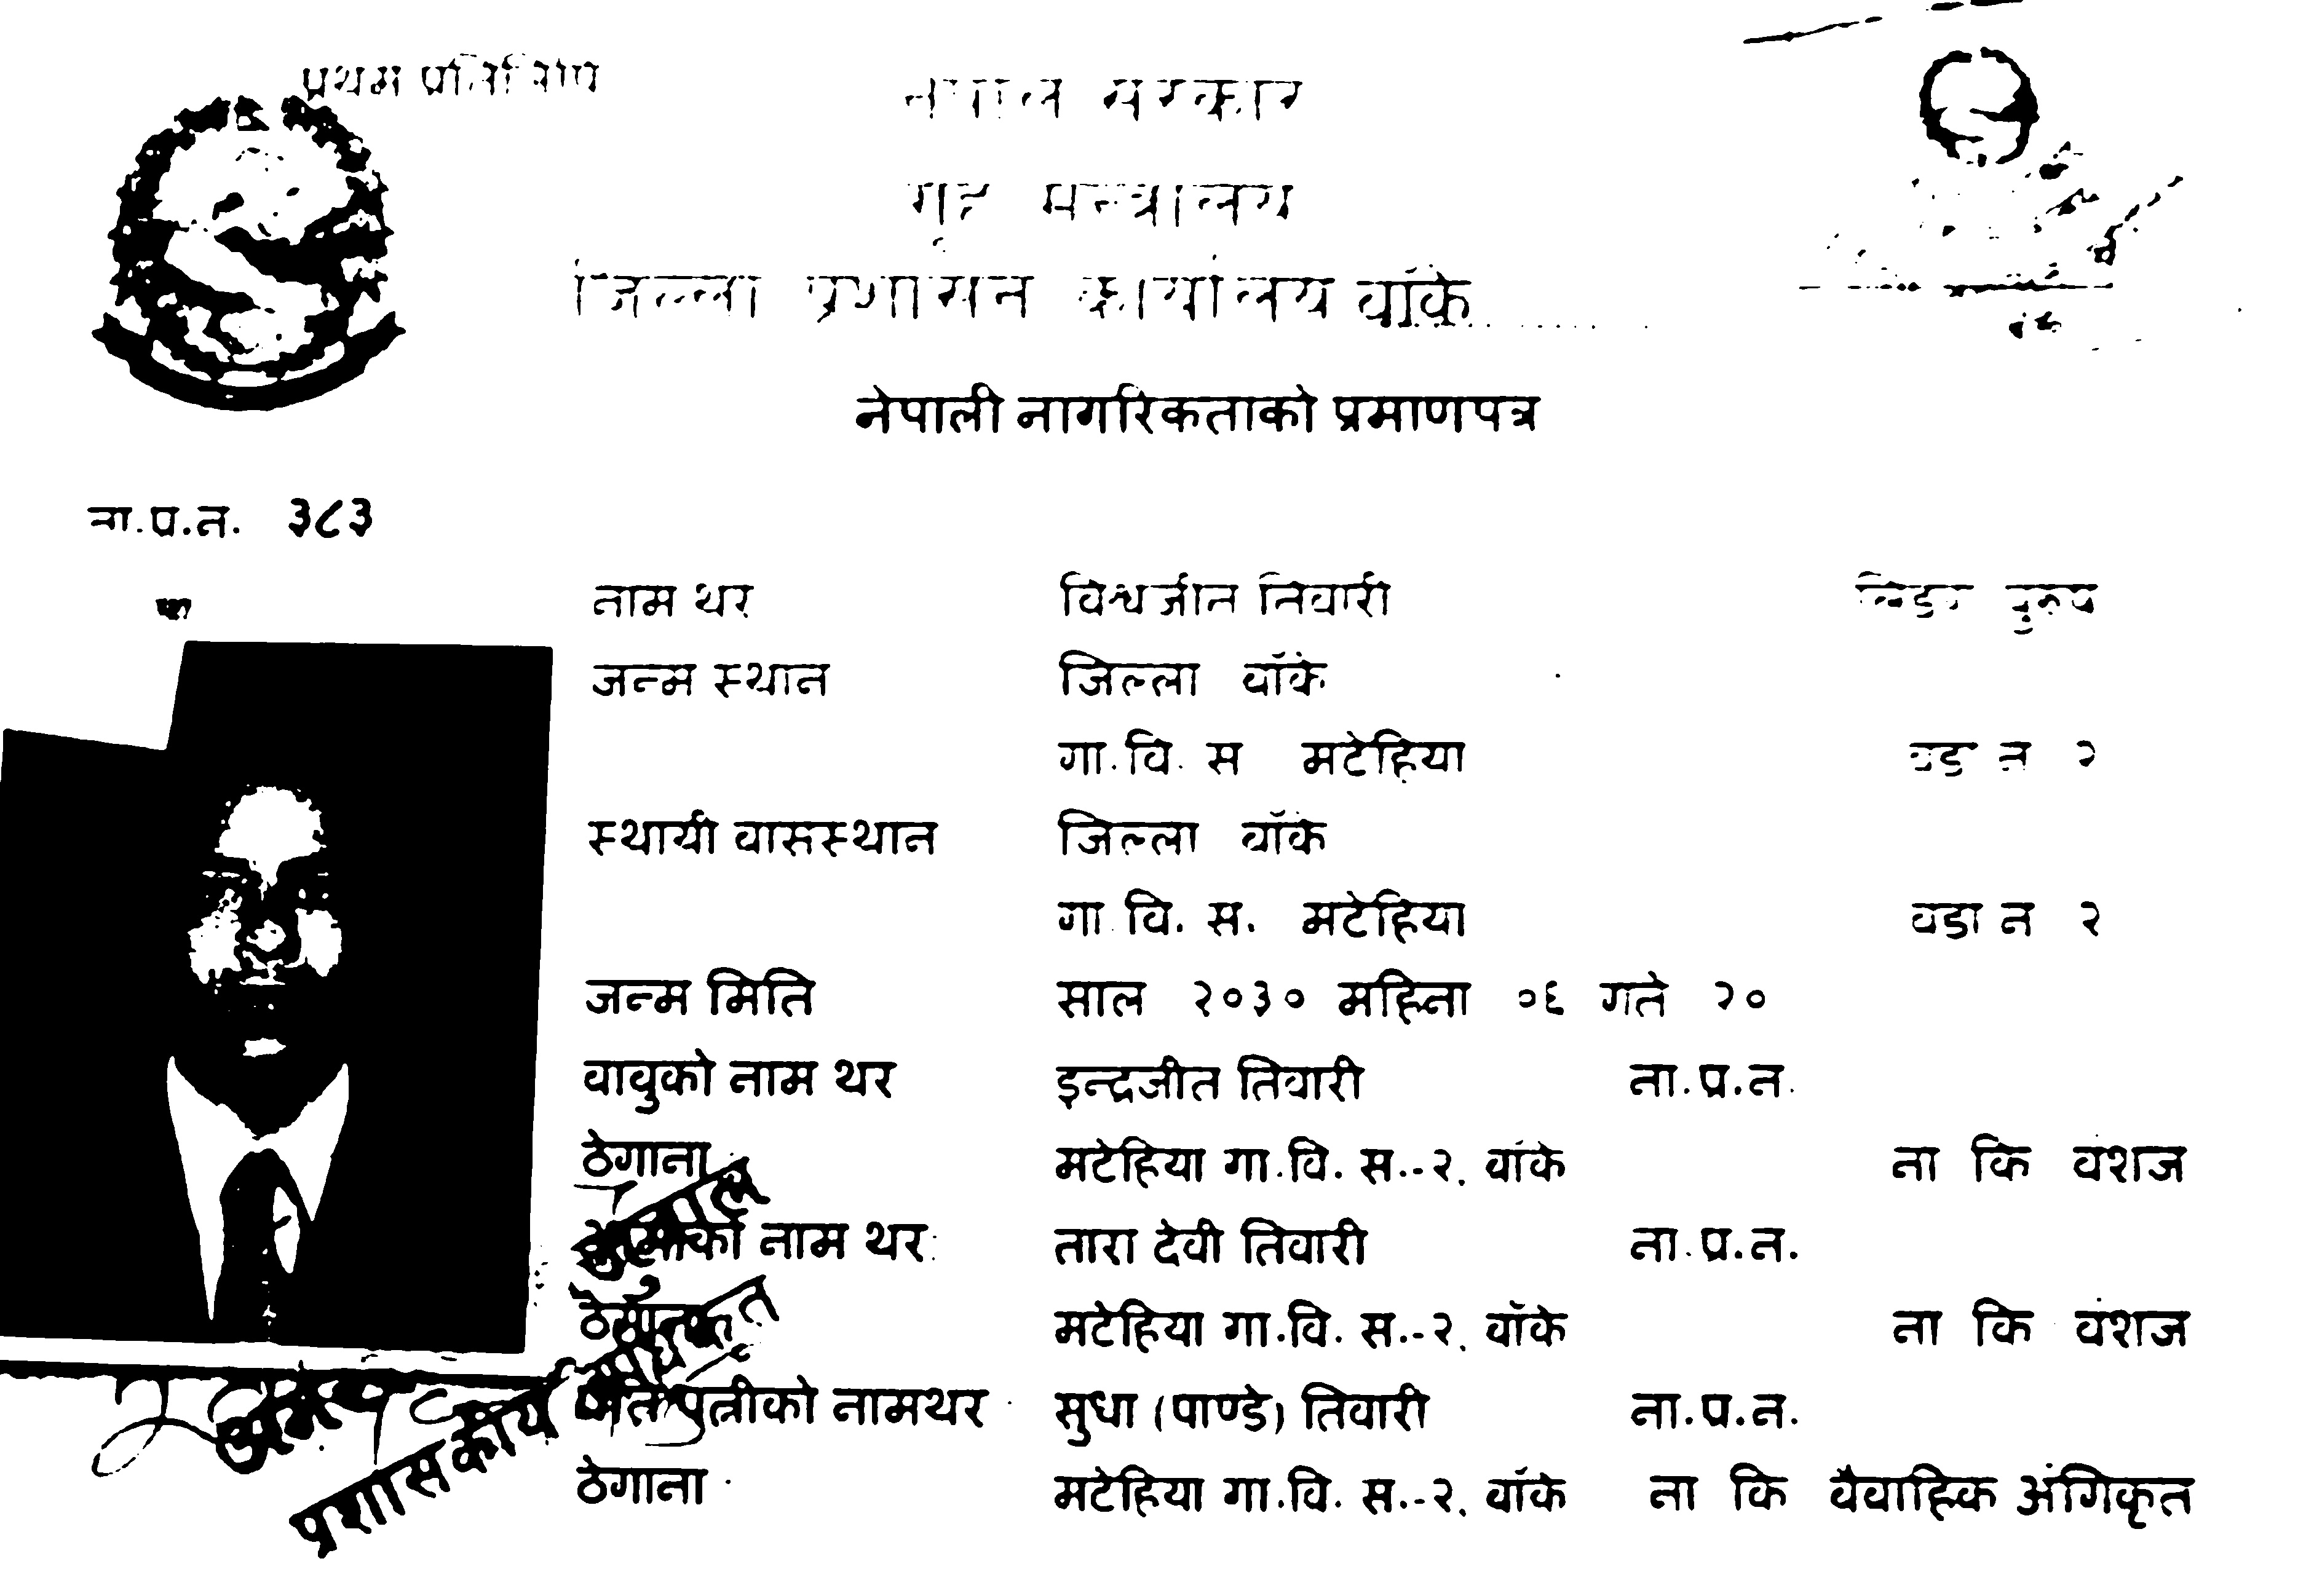 प्रथम प्रतिलिपि
नेपाल सरकार
गृह मन्त्रालय
जिल्ला प्रशासन कार्यालय बाँके
नेपाली नागरिकताको प्रमाणपत्र
ना.प्र.न. ३८३
नाम थर विश्वजीत तिवारी लिङ्ग पुरुष
जन्म स्थान जिल्ला बाँके
गा.वि. स मटेहिया वडा न २
स्थायी वासस्थान जिल्ला बाँके
गा वि. स. मटेहिया वडा न २
जन्म मिति साल २०३० महिना ०६ गते २०
वावुको नाम थर इन्द्रजीत तिवारी ना.प्र.न.
ठेगाना मटेहिया गा.वि. स.-२, बाँके ना कि वंशज
आमाको नाम थर: तारा देवी तिवारी ना.प्र.न.
ठेगाना मटेहिया गा.वि. स.-२, बाँके ना कि वंशज
पति/पत्नीको नामथर सुधा (पाण्डे) तिवारी ना.प्र.न.
ठेगाना मटेहिया गा.वि. स.-२, बाँके ना कि वैवाहिक अंगिकृत